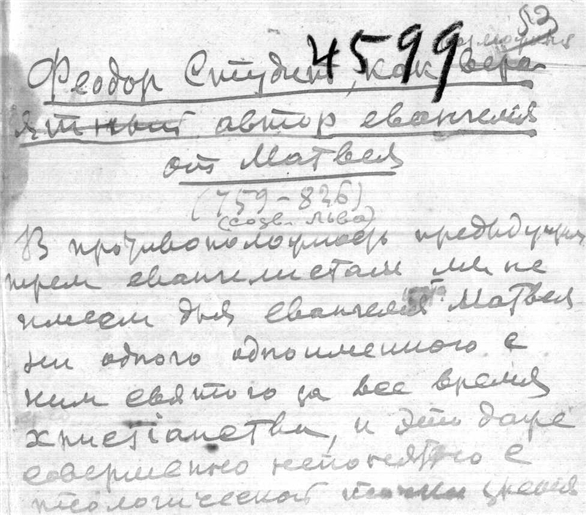 §3
4599
Феодор Студит, как веро
ятный автор евангелия
от Матвея
(759–826)
(созв. Льва)
В противоположность предыдущим
трем евангелистам мы не
имеем для Евангелия Матвея
ни одного одноименного с
ним святого за все время
христiанства, и это даже
совершенно непонятно с
теологической точки зрения